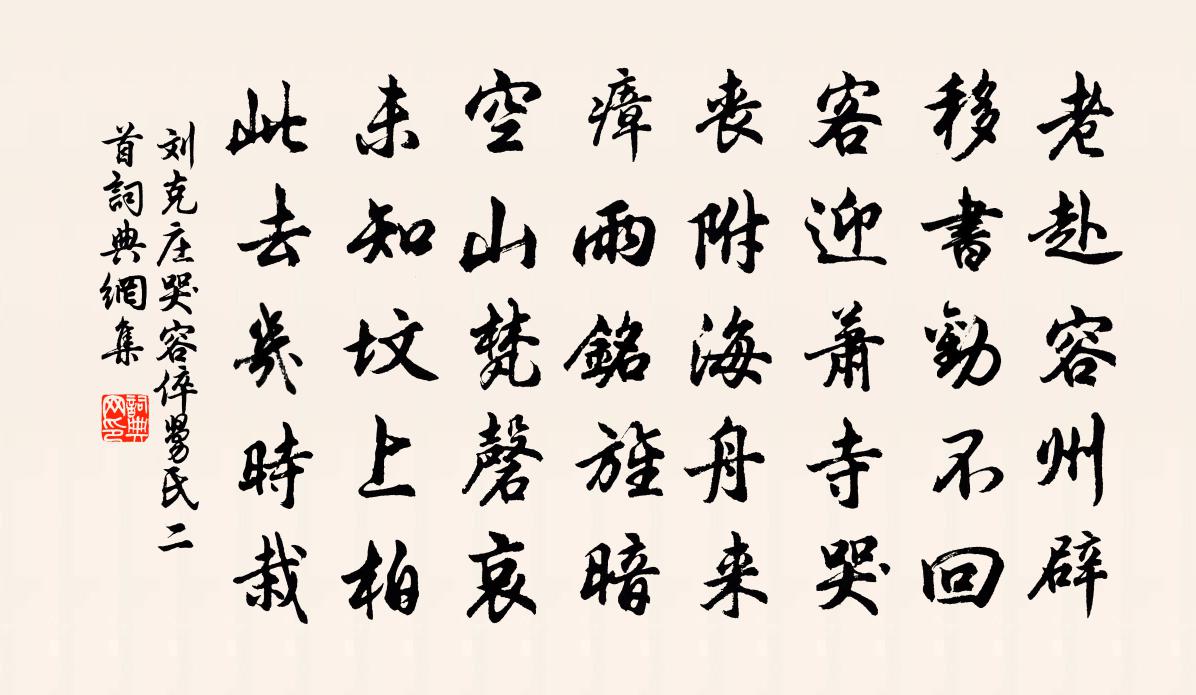 老赴容州辟
移書勸不回
客迎蕭寺哭
喪附海舟来
瘴雨銘旌暗
空山梵磬哀
未知坟上柏
此去幾時栽
刘克庄哭容倅舅氏二
首詞典網集
詞典网印